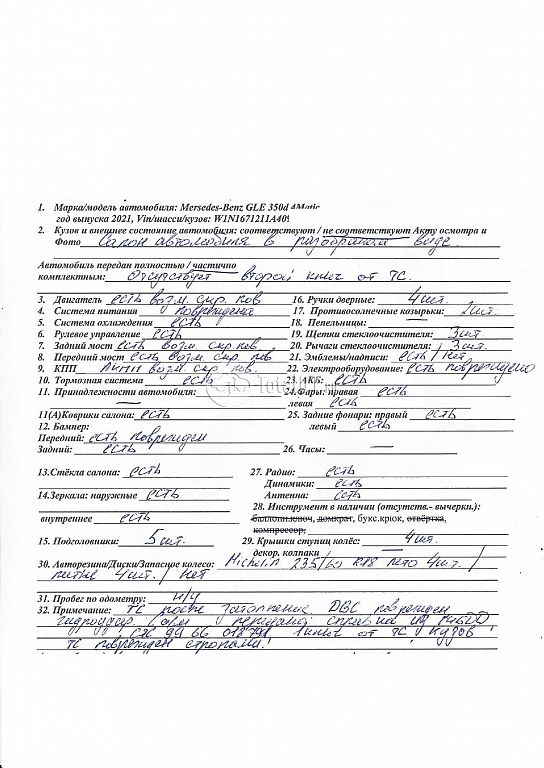 1. Марка/модель автомобиля: Mersedes-Benz GLE 350d 4Matic
год выпуска 2021, Vin/шасси/кузов: W1N1671211A40
2. Кузов и внешнее состояние автомобиля: соответствуют / не соответствуют Акту осмотра и
Фото Салон автомобиля в разобраном виде
Автомобиль передан полностью / частично
комплектным: Отсутствует второй ключ от ТС.
3. Двигатель есть возм. скр. пов 16. Ручки дверные: 4 шт.
4. Система питания повреждена 17. Противосолнечные козырьки: 2 шт
5. Система охлаждения есть 18. Пепельницы: —
6. Рулевое управление есть 19. Щетки стеклоочистителя: 3 шт.
7. Задний мост есть возм. скр. пов. 20. Рычаги стеклоочистителя: 3 шт.
8. Передний мост есть возм. скр. пов 21. Эмблемы/надписи: есть / нет
9. КПП АКПП возм. скр. пов. 22. Электрооборудование: есть повреждено
10. Тормозная система есть 23. АКБ: есть
11. Принадлежности автомобиля: 24.Фары: правая есть
левая есть
11(А)Коврики салона: есть 25. Задние фонари: правый есть
12. Бампер: левый есть
Передний: есть поврежден
Задний: есть 26. Часы: —
13.Стёкла салона: есть 27. Радио: есть
Динамики: есть
14.Зеркала: наружные есть Антенна: есть
28. Инструмент в наличии (отсутств.- вычеркн.):
внутреннее есть баллонн.ключ, домкрат, букс.крюк, отвёртка,
компрессор,
15. Подголовники: 5 шт. 29. Крышки ступиц колёс: 4 шт.
декор. колпаки —
30. Авторезина/Диски/Запасное колесо: Michelin 235/60 R18 лето 4 шт. /
литые 4 шт. / нет
31. Пробег по одометру: н/у
32. Примечание: ТС после затопление ДВС поврежден
гидроудар. справки из ГИБДД
99 66 ключ от ТС, кузов
ТС поврежден стропами.